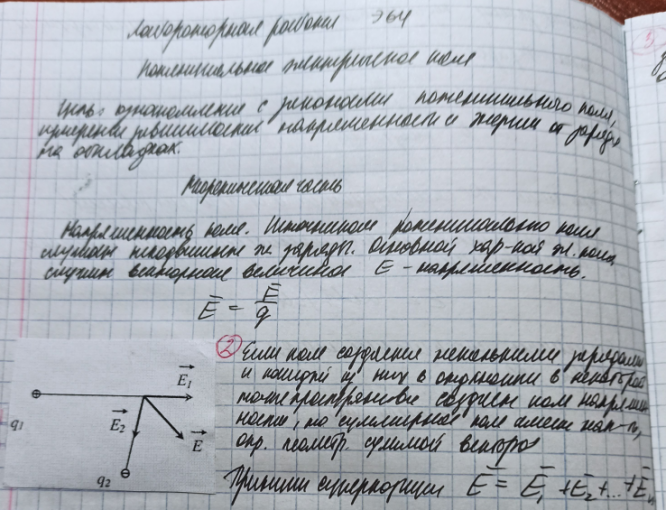 Лабораторная работа Э64
Потенциальное электрическое поле
Цель: ознакомление с законами потенциального поля,
измерение зависимости напряженности и энергии от заряда
на обкладках.
Теоретическая часть
Напряженность поля. Источником потенциально поля
служат неподвижные эл. заряды. Основной хар-кой эл. поля
служит векторная величина E - напряженность.
E̅ = E̅/q
② Если поле создается несколькими зарядами
и каждый из них в отдельности в некоторой
точке пространстве создает поле напряжен-
ности, то суммарное поле имеет нап-ть,
опр. геометр. суммой векторов
Принцип суперпозиции E̅ = E̅₁ + E̅₂ + ... + E̅ₙ
q1
E⃗1
E⃗2
E⃗
q2